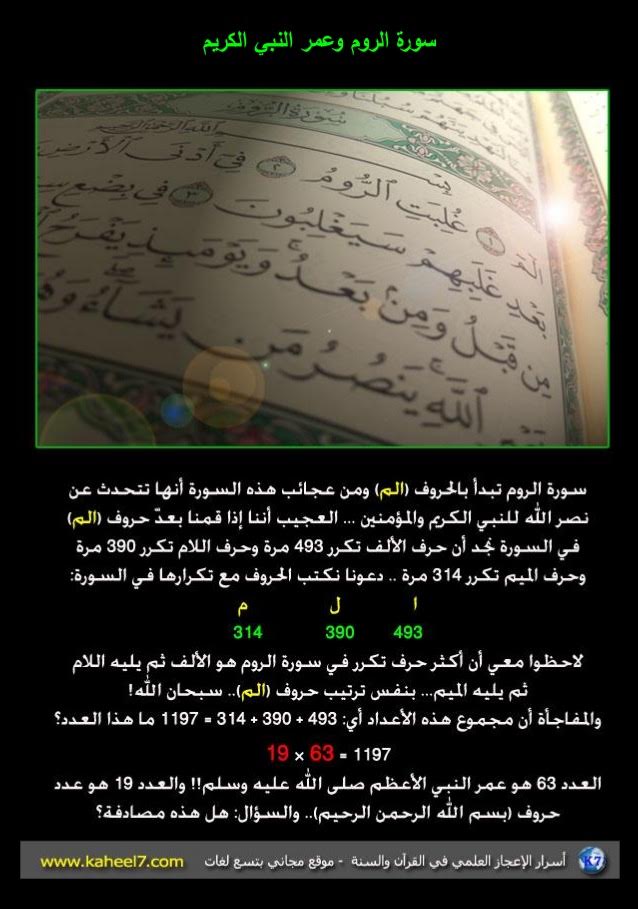 سورة الروم وعمر النبي الكريم
سُورَةُ الرُّومِ
بِسْمِ اللَّهِ الرَّحْمَٰنِ الرَّحِيمِ
الٓمٓ ١ غُلِبَتِ ٱلرُّومُ ٢ فِىٓ أَدْنَى ٱلْأَرْضِ
بَعْدِ غَلَبِهِمْ سَيَغْلِبُونَ ٣ فِى بِضْعِ
مِن قَبْلُ وَمِنۢ بَعْدُ وَيَوْمَئِذٍ يَفْرَحُ
ٱللَّهِ يَنصُرُ مَن يَشَآءُ وَهُوَ
سورة الروم تبدأ بالحروف (الم) ومن عجائب هذه السورة أنها تتحدث عن
نصر الله للنبي الكريم والمؤمنين ... العجيب أننا إذا قمنا بعدّ حروف (الم)
في السورة نجد أن حرف الألف تكرر 493 مرة وحرف اللام تكرر 390 مرة
وحرف الميم تكرر 314 مرة .. دعونا نكتب الحروف مع تكرارها في السورة:
ا ل م
493 390 314
لاحظوا معي أن أكثر حرف تكرر في سورة الروم هو الألف ثم يليه اللام
ثم يليه الميم... بنفس ترتيب حروف (الم).. سبحان الله!
والمفاجأة أن مجموع هذه الأعداد أي: 493 + 390 + 314 = 1197 ما هذا العدد؟
1197 = 63 × 19
العدد 63 هو عمر النبي الأعظم صلى الله عليه وسلم!! والعدد 19 هو عدد
حروف (بسم الله الرحمن الرحيم).. والسؤال: هل هذه مصادفة؟
K7 أسرار الإعجاز العلمي في القرآن والسنة - موقع مجاني بتسع لغات www.kaheel7.com